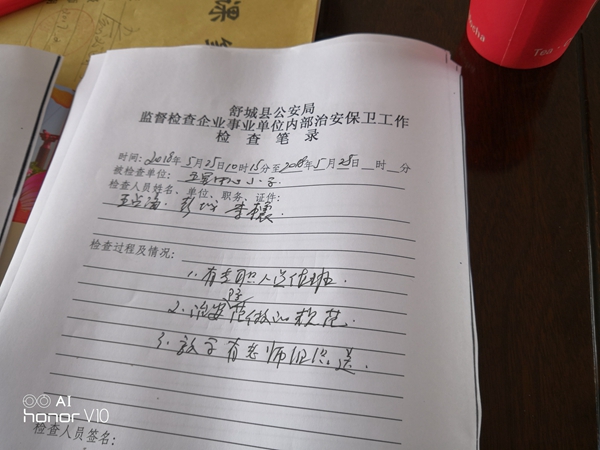 课
舒城县公安局
监督检查企业事业单位内部治安保卫工作
检查笔录
时间:2018年5月25日10时15分至2018年5月25日__时__分
被检查单位: 中心小学
检查人员姓名、单位、职务、证件:
检查过程及情况:
1.有专职人员值班
2.治安防做的规范.
3.放学有老师 送.
检查人员签名:
cha
Tea
AI
honor V10